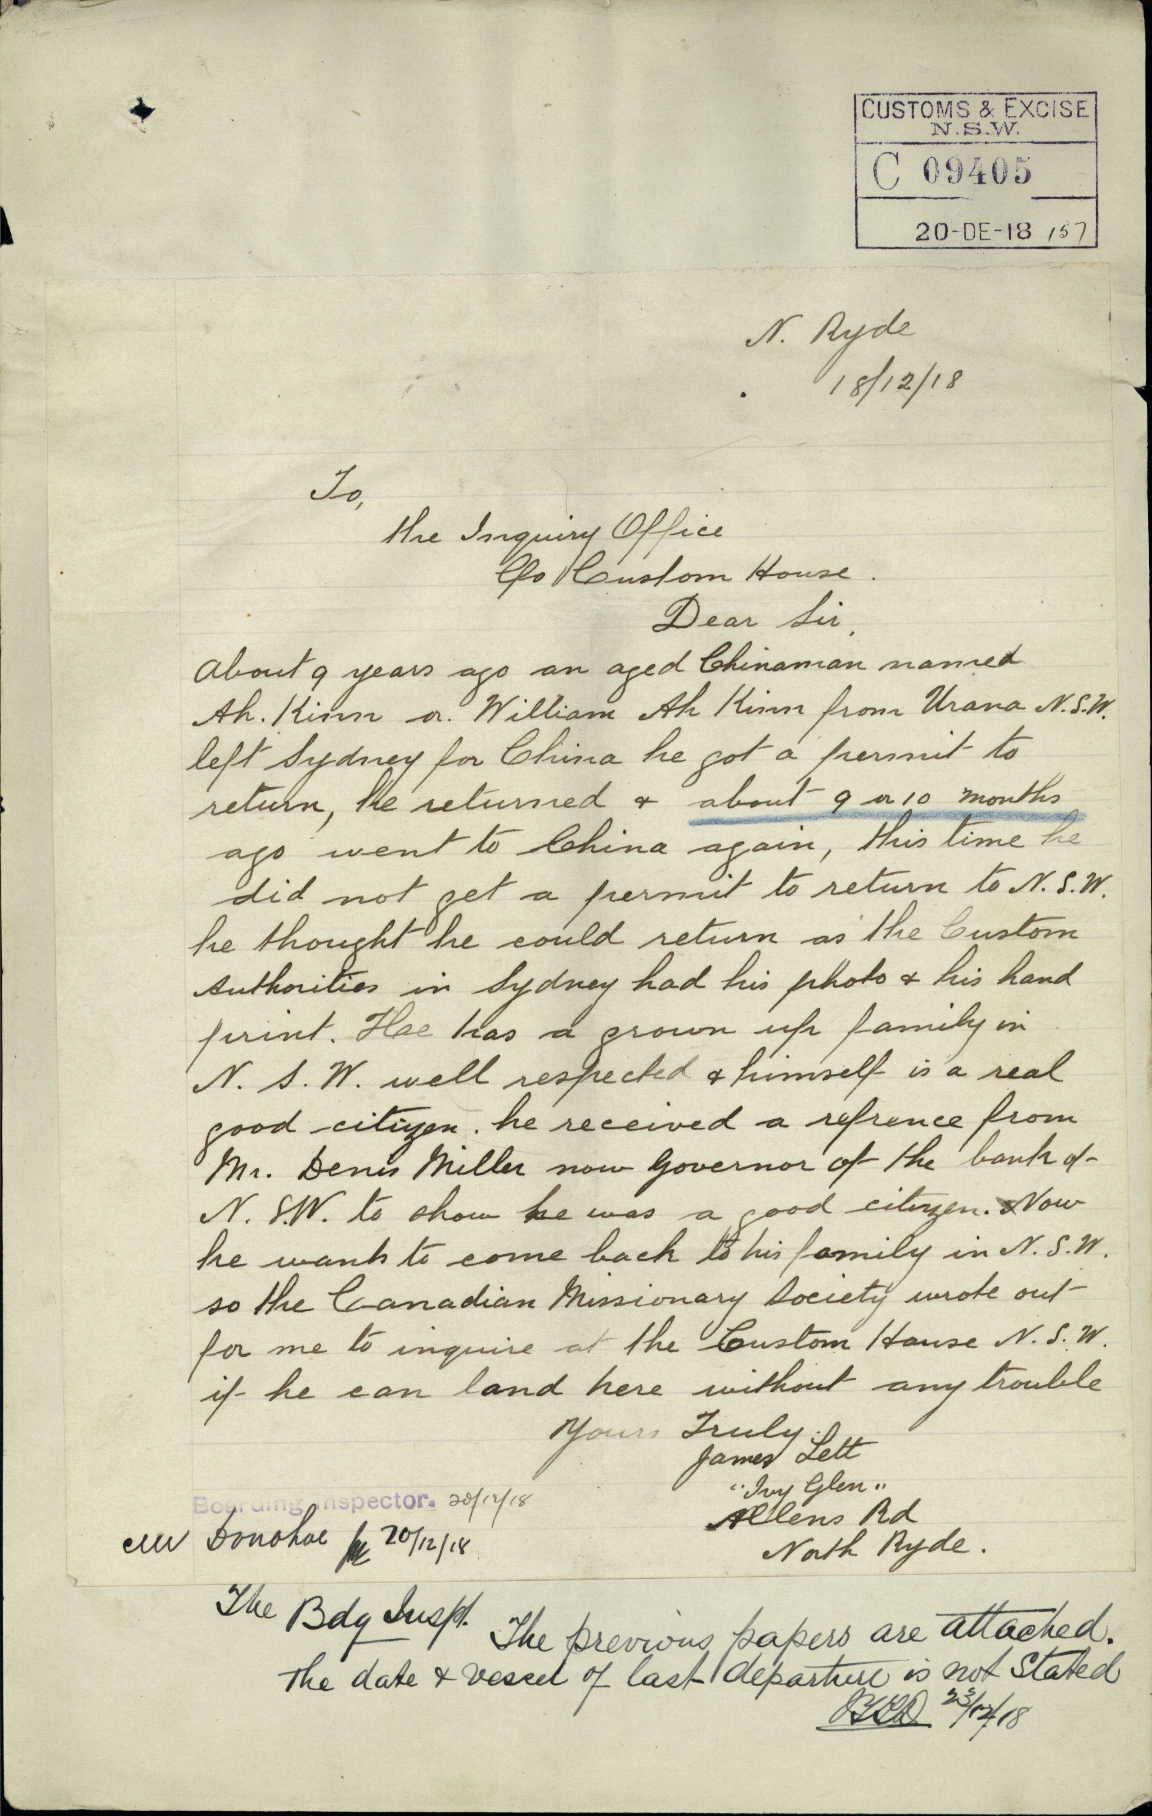 CUSTOMS & EXCISE
N.S.W.
C 09405
20-DE-18 157
N. Ryde
18/12/18
To,
the Inquiry Office
C/o Custom House.
Dear Sir,
About 9 years ago an aged Chinaman named
Ah. Kinn or. William Ah Kinn from Urana N.S.W.
left Sydney for China he got a permit to
return, he returned & about 9 or 10 months
ago went to China again, this time he
did not get a permit to return to N.S.W.
he thought he could return as the Custom
Authorities in Sydney had his photo & his hand
print. Hee has a grown up family in
N. S. W. well respected & himself is a real
good citizen. he received a refrence from
Mr. Denis Miller now Governor of the bank of
N. S.W. to show he was a good citizen. Now
he wants to come back to his family in N. S. W.
so the Canadian Missionary Society wrote out
for me to inquire at the Custom House N. S. W.
if he can land here without any trouble
Yours Truly.
James Lett
"Ivy Glen"
Allens Rd
North Ryde.
Boarding Inspector. 20/12/18
Donohoe 20/12/18
The Bdg Inspt.
The previous papers are attached.
The date & vessel of last departure is not stated
23/12/18